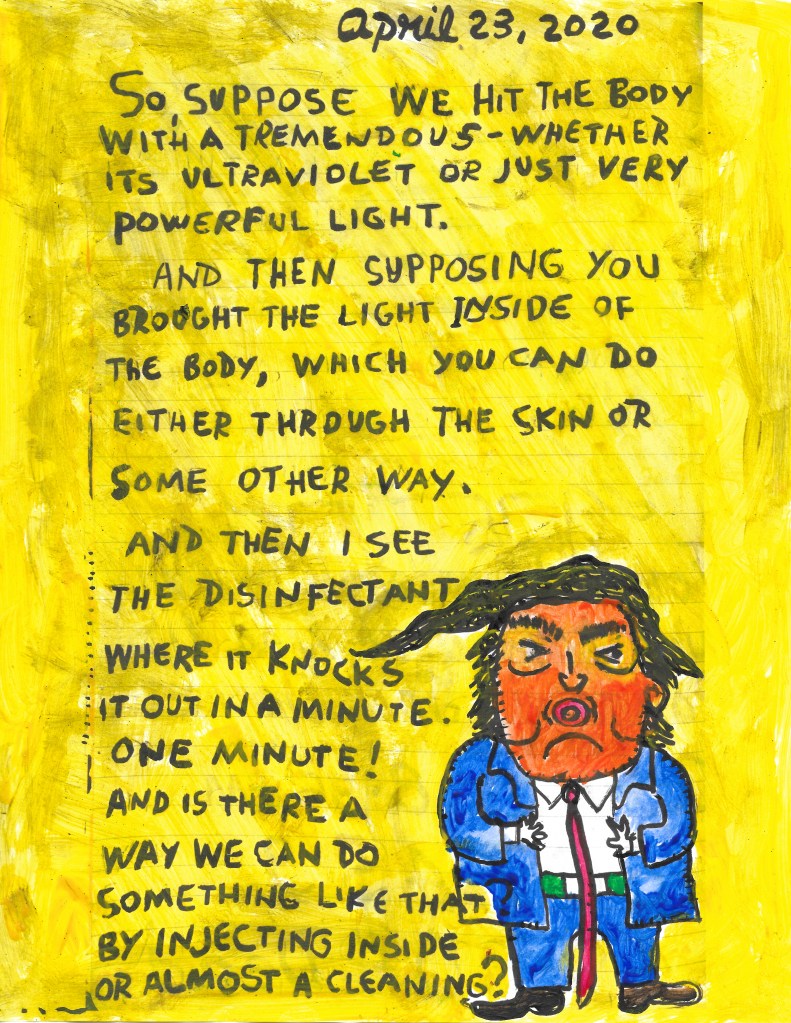 April 23, 2020
SO, SUPPOSE WE HIT THE BODY
WITH A TREMENDOUS - WHETHER
ITS ULTRAVIOLET OR JUST VERY
POWERFUL LIGHT.
AND THEN SUPPOSING YOU
BROUGHT THE LIGHT INSIDE OF
THE BODY, WHICH YOU CAN DO
EITHER THROUGH THE SKIN OR
SOME OTHER WAY.
AND THEN I SEE
THE DISINFECTANT
WHERE IT KNOCKS
IT OUT IN A MINUTE.
ONE MINUTE!
AND IS THERE A
WAY WE CAN DO
SOMETHING LIKE THAT?
BY INJECTING INSIDE
OR ALMOST A CLEANING?